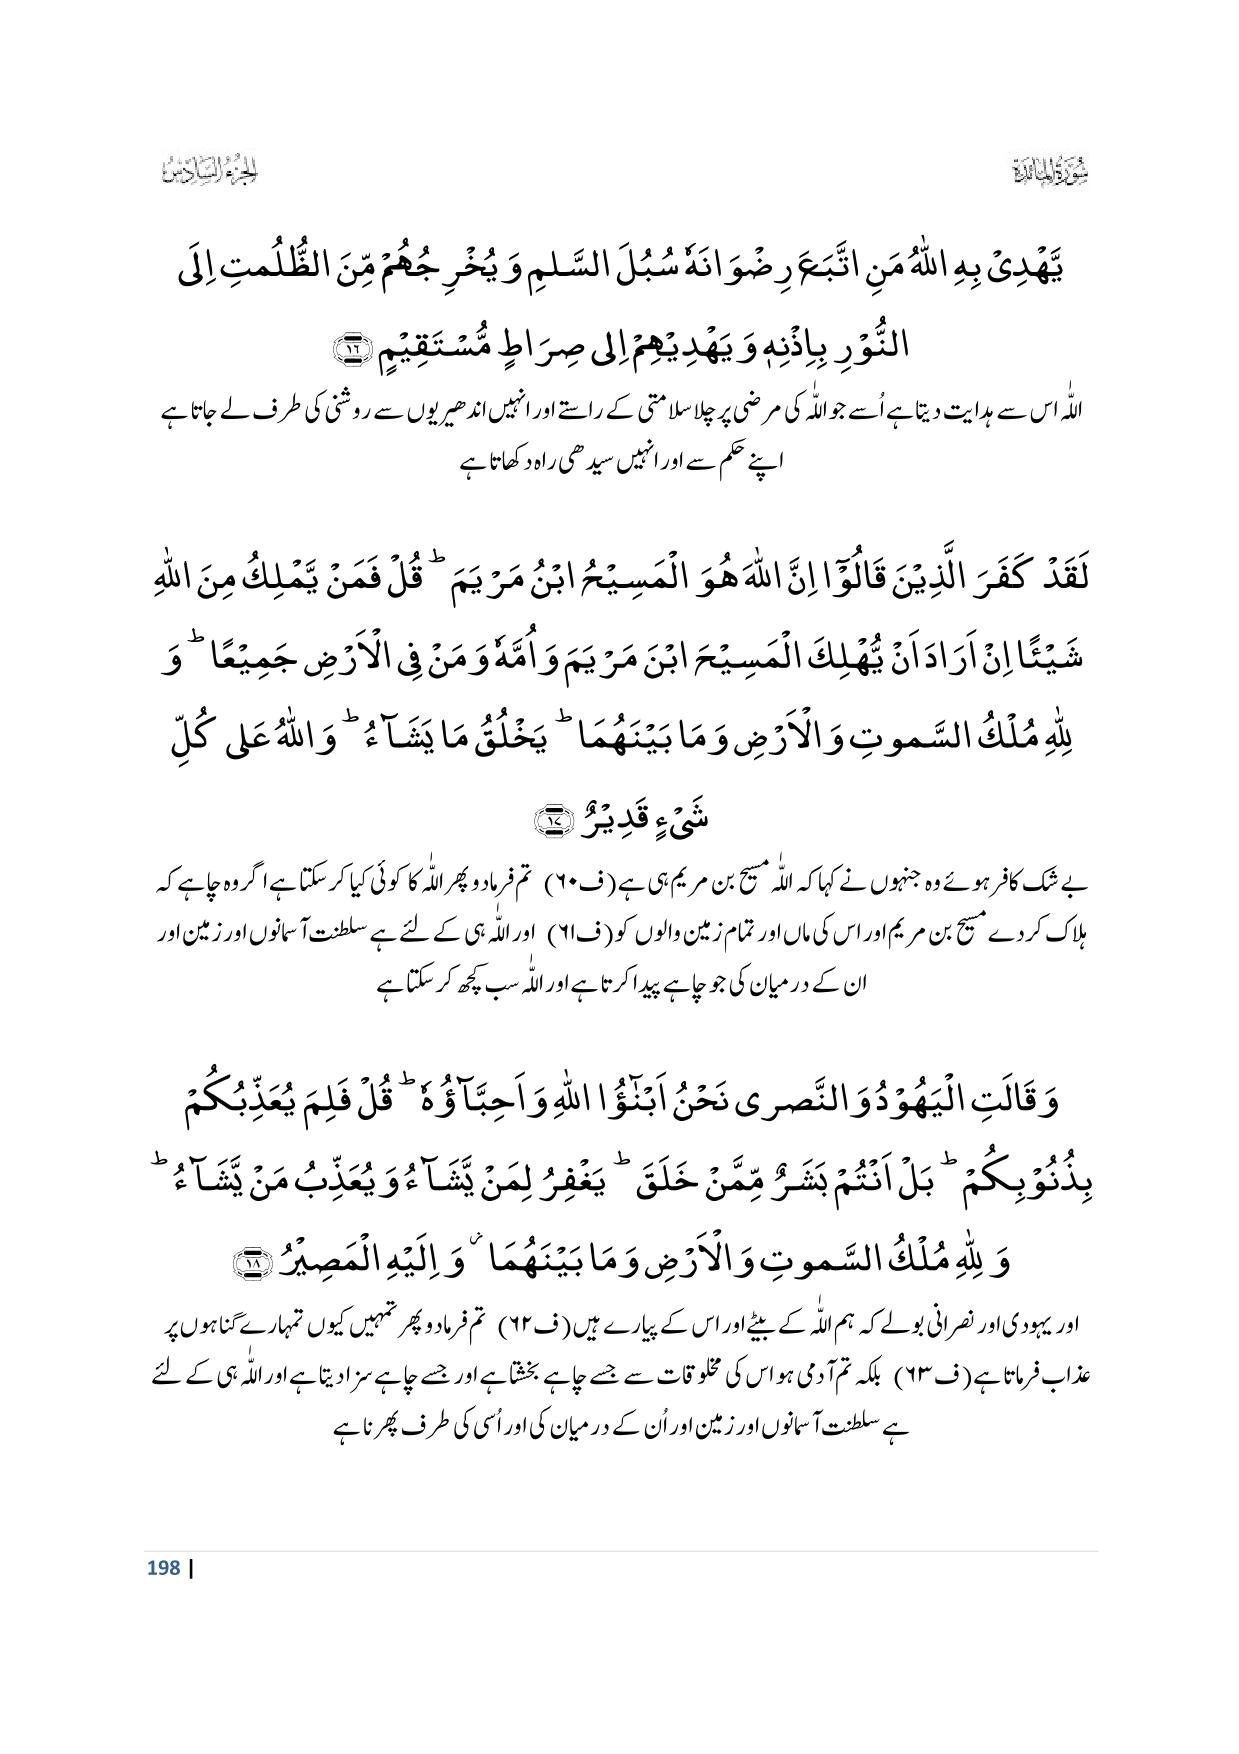 سُوْرَةُ الْمَائِدَة
الجزء السادس
يَّهْدِیْ بِهِ اللّٰهُ مَنِ اتَّبَعَ رِضْوَانَهٗ سُبُلَ السَّلٰمِ وَ یُخْرِجُهُمْ مِّنَ الظُّلُمٰتِ اِلَی
النُّوْرِ بِاِذْنِهٖ وَ یَهْدِیْهِمْ اِلٰی صِرَاطٍ مُّسْتَقِیْمٍ ﴿۱۶﴾
اللّٰہ اس سے ہدایت دیتا ہے اُسے جو اللّٰہ کی مرضی پر چلا سلامتی کے راستے اور انہیں اندھیریوں سے روشنی کی طرف لے جاتا ہے
اپنے حکم سے اور انہیں سیدھی راہ دکھاتا ہے
لَقَدْ كَفَرَ الَّذِیْنَ قَالُوْۤا اِنَّ اللّٰهَ هُوَ الْمَسِیْحُ ابْنُ مَرْیَمَ ؕ قُلْ فَمَنْ یَّمْلِكُ مِنَ اللّٰهِ
شَیْـًٔا اِنْ اَرَادَ اَنْ یُّهْلِكَ الْمَسِیْحَ ابْنَ مَرْیَمَ وَ اُمَّهٗ وَ مَنْ فِی الْاَرْضِ جَمِیْعًا ؕ وَ
لِلّٰهِ مُلْكُ السَّمٰوٰتِ وَ الْاَرْضِ وَ مَا بَیْنَهُمَا ؕ یَخْلُقُ مَا یَشَآءُ ؕ وَ اللّٰهُ عَلٰی كُلِّ
شَیْءٍ قَدِیْرٌ ﴿۱۷﴾
بے شک کافر ہوئے وہ جنہوں نے کہا کہ اللّٰہ مسیح بن مریم ہی ہے (ف۶۰) تم فرمادو پھر اللّٰہ کا کوئی کیا کر سکتا ہے اگر وہ چاہے کہ
ہلاک کردے مسیح بن مریم اور اس کی ماں اور تمام زمین والوں کو (ف۶۱) اور اللّٰہ ہی کے لئے ہے سلطنت آسمانوں اور زمین اور
ان کے درمیان کی جو چاہے پیدا کرتا ہے اور اللّٰہ سب کچھ کر سکتا ہے
وَ قَالَتِ الْیَهُوْدُ وَ النَّصٰرٰی نَحْنُ اَبْنٰٓؤُا اللّٰهِ وَ اَحِبَّآؤُهٗ ؕ قُلْ فَلِمَ یُعَذِّبُكُمْ
بِذُنُوْبِكُمْ ؕ بَلْ اَنْتُمْ بَشَرٌ مِّمَّنْ خَلَقَ ؕ یَغْفِرُ لِمَنْ یَّشَآءُ وَ یُعَذِّبُ مَنْ یَّشَآءُ ؕ
وَ لِلّٰهِ مُلْكُ السَّمٰوٰتِ وَ الْاَرْضِ وَ مَا بَیْنَهُمَا ؗ وَ اِلَیْهِ الْمَصِیْرُ ﴿۱۸﴾
اور یہودی اور نصرانی بولے کہ ہم اللّٰہ کے بیٹے اور اس کے پیارے ہیں (ف۶۲) تم فرمادو پھر تمہیں کیوں تمہارے گناہوں پر
عذاب فرماتا ہے (ف۶۳) بلکہ تم آدمی ہو اس کی مخلوقات سے جسے چاہے بخشتا ہے اور جسے چاہے سزا دیتا ہے اور اللّٰہ ہی کے لئے
ہے سلطنت آسمانوں اور زمین اور اُن کے درمیان کی اور اُسی کی طرف پھرنا ہے
198 |